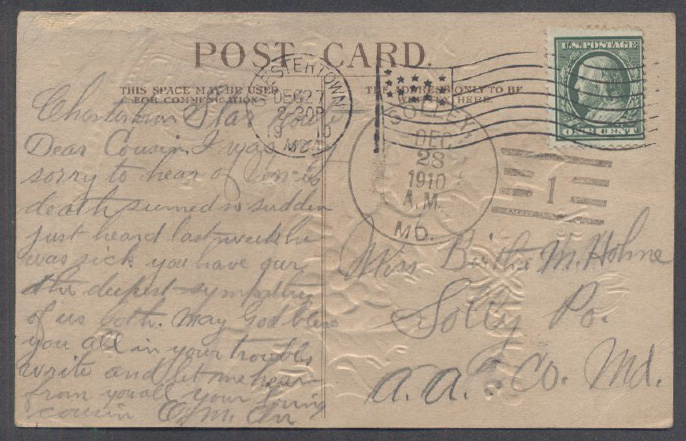 POST CARD.
THIS SPACE MAY BE USED
FOR COMMUNICATION
THE ADDRESS ONLY TO BE
WRITTEN HERE.
CHESTERTOWN
DEC 27
2 30P
1910
MD.
SOLLEY
DEC
28
1910
A.M.
MD.
1
U.S. POSTAGE
ONE CENT
Chestertown Star Route
Dear Cousin. I was
sorry to hear of
death seemed so sudden
just heard last week he
was sick you have our
the deepest sympathy
of us both. May God bless
you all in your troubls
write and let me hear
from you all your loving
cousin
Miss Birtha M. Hohne
Solly Po.
A. A. Co. Md.